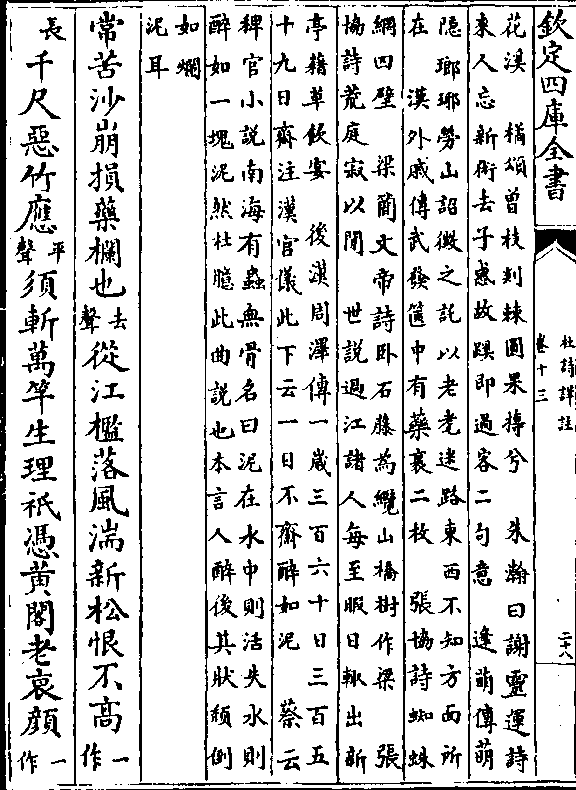 欽定四庫全書
杜詩詳註
卷十三
二十八
花溪　橘頌曾枝剡棘圓果摶兮　朱瀚曰謝靈運詩
來人忘新術去子惑故蹊即過客二句意　逢萌傳萌
隠瑯琊勞山詔徴之託以老耄迷路東西不知方面所
在　漢外戚傳武發篋中有藥裹二枚　張協詩蜘蛛
網四壁　梁簡文帝詩卧石藤為纜山橋樹作梁　張
協詩荒庭寂以閒　世說過江諸人每至暇日輒出新
亭藉草飲宴　後漢周澤傳一嵗三百六十日三百五
十九日齋注漢官儀此下云一日不齋醉如泥　蔡云
稗官小說南海有蟲無骨名曰泥在水中則活失水則
醉如一塊泥然杜臆此曲說也本言人醉後其狀頹倒
如爛
泥耳
常苦沙崩損藥欄也去聲從江檻落風湍新松恨不高一作
長千尺惡竹應平聲須斬萬竿生理秪憑黃閣老衰顔一作